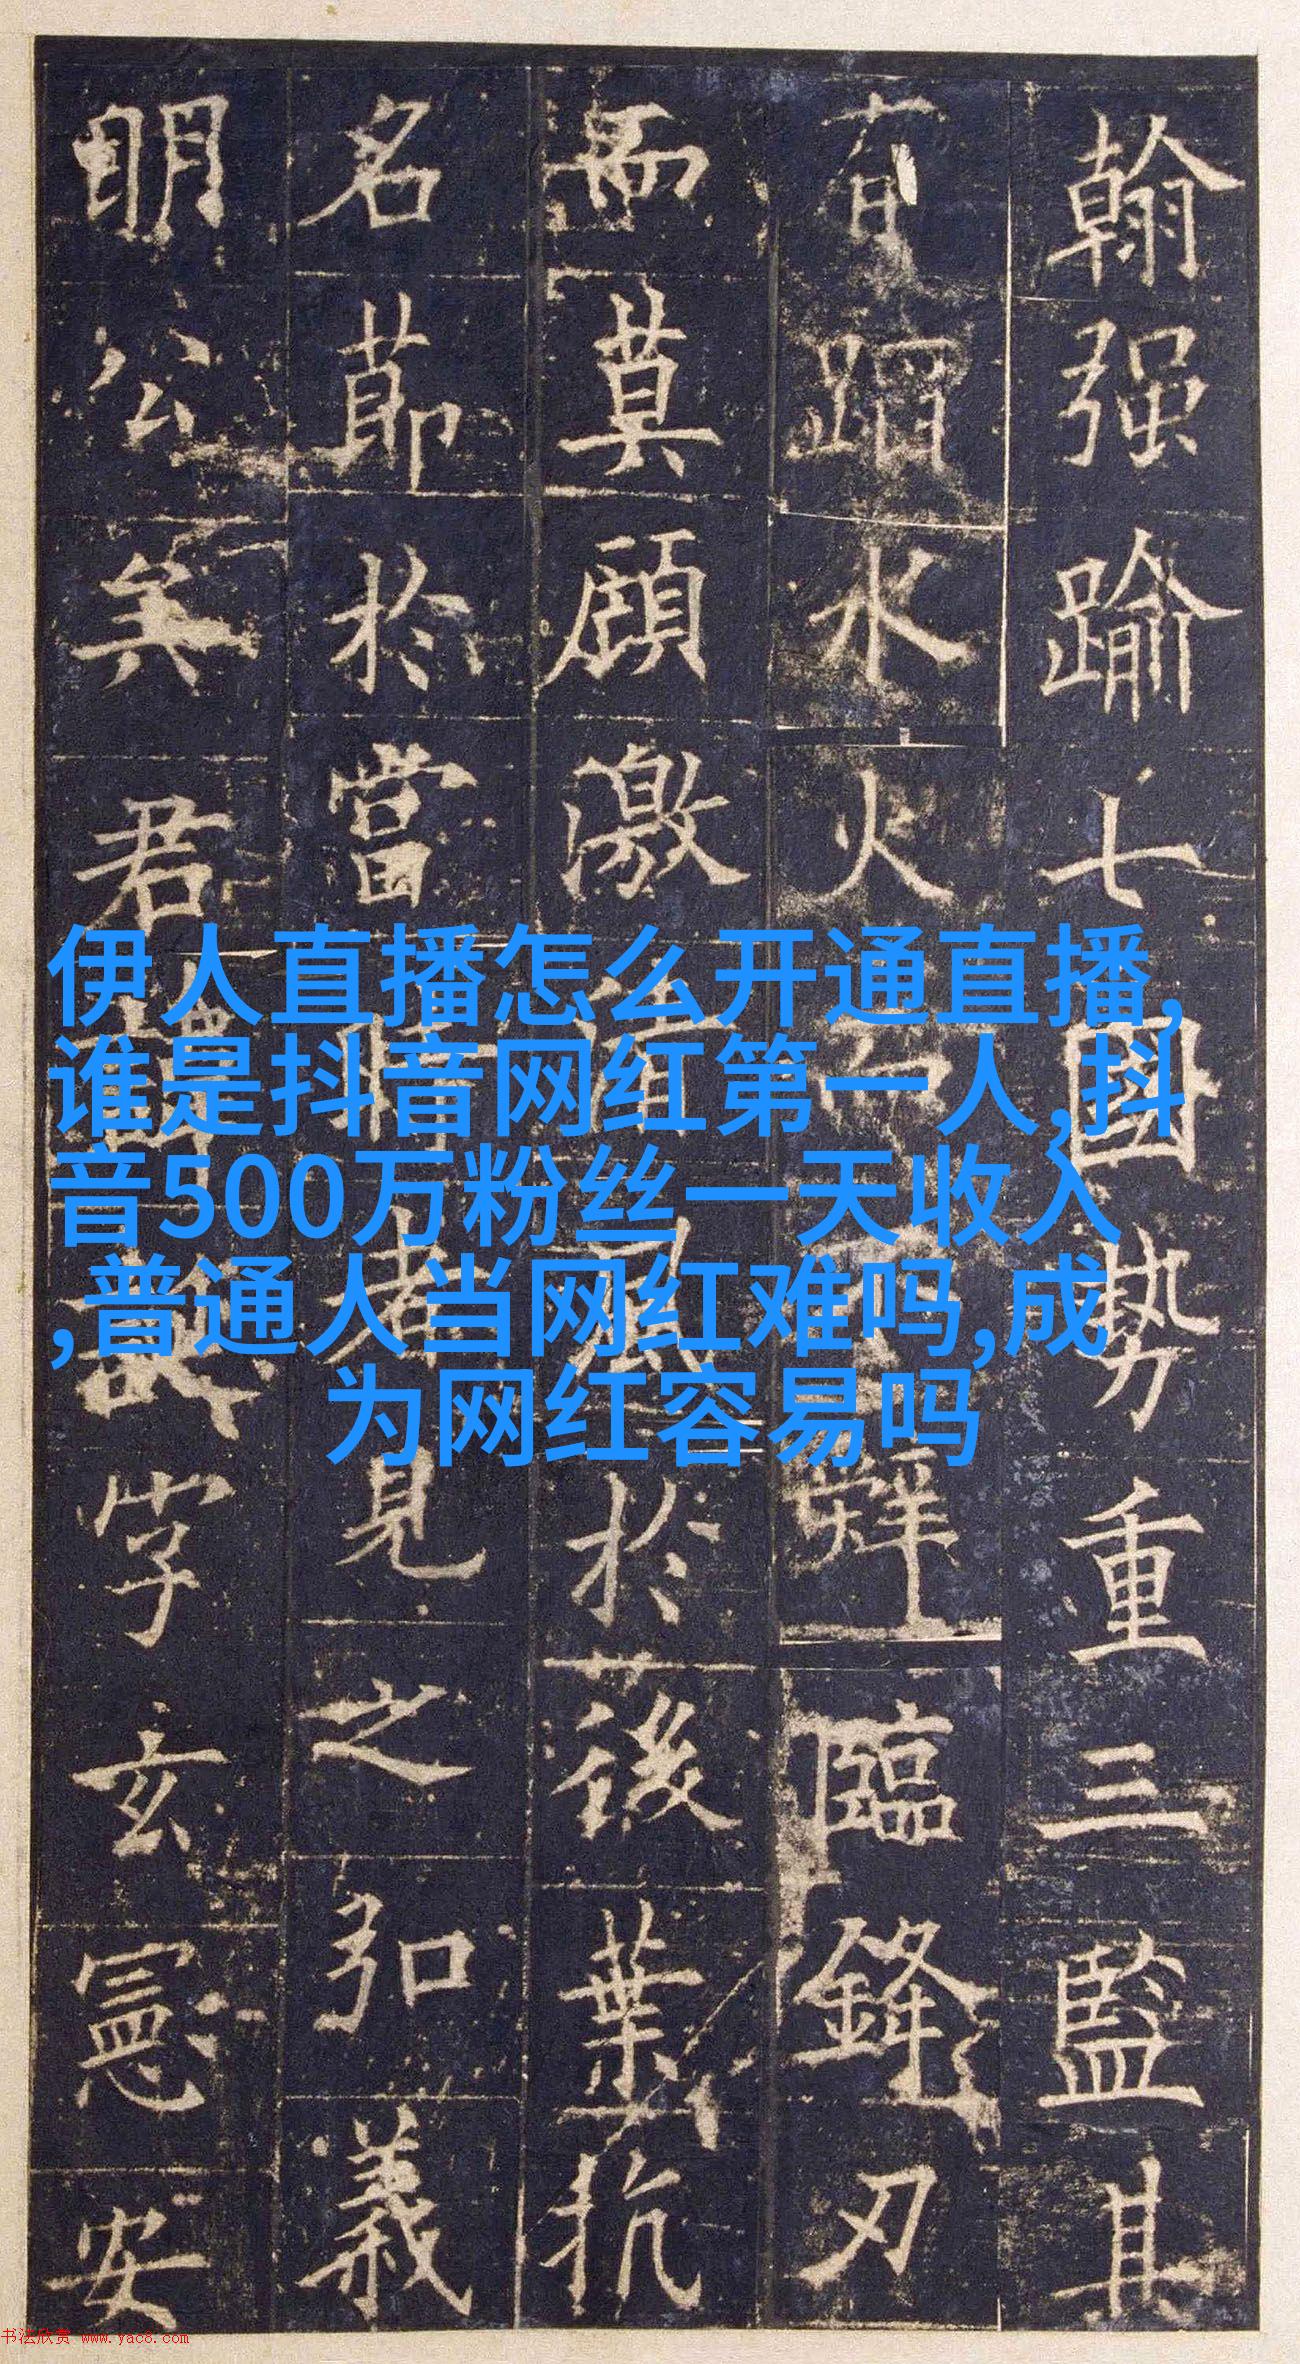 翰强踰七國势重三監其
有蹈水火而不辭臨鋒刃
而莫顧激清風於後葉抗
名節於當時者見之弘義
明公矣君諱誕字玄憲安
伊人直播怎么开通直播,
谁是抖音网红第一人,抖
音500万粉丝一天收入
,普通人当网红难吗,成
为网红容易吗
书法欣赏 www.yac8.com